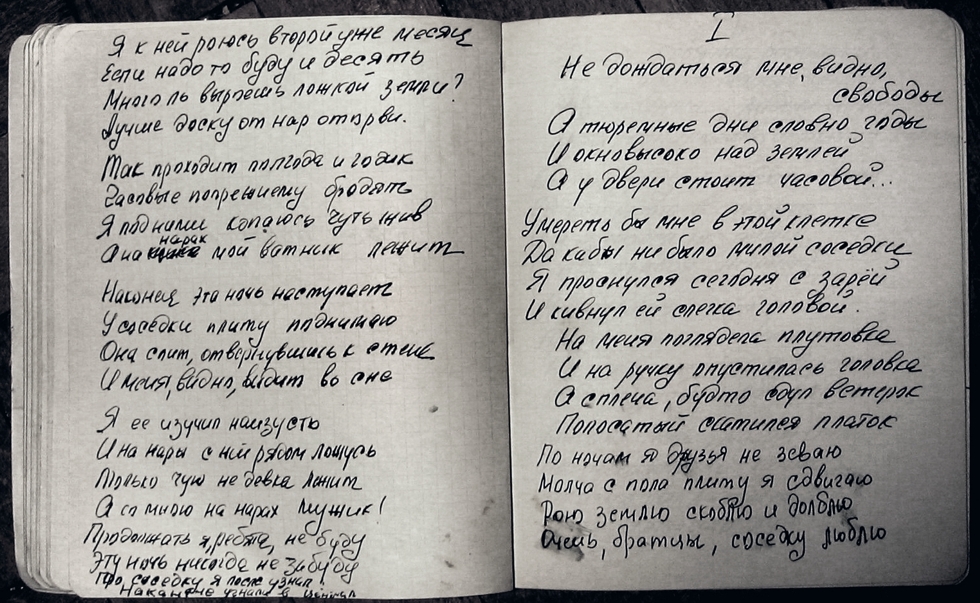 Я к ней роюсь второй уже месяц
Если надо то буду и десять
Много ль выроешь ложкой земли?
Лучше доску от нар оторви.
Так проходит полгода и годик
Часовые попрежнему бродят
Я под ними копаюсь чуть жив
нарах
А на мой ватник лежит
Наконец эта ночь наступает
У соседки плиту поднимаю
Она спит, отвернувшись к стене
И меня, видно, видит во сне
Я ее изучил наизусть
И на нары с ней рядом ложусь
Только чую не девка лежит
А со мною на нарах мужик!
Продолжать я, ребята, не буду
Эту ночь никогда не забуду
Про соседку я после узнал!
Накануне угнали в централ
I
Не дождаться мне, видно,
свободы
А тюремные дни словно годы
И окно высоко над землей
А у двери стоит часовой...
Умереть бы мне в этой клетке
Да кабы не было милой соседки
Я проснулся сегодня с зарёй
И кивнул ей слегка головой.
На меня поглядела плутовка
И на ручку опустилась головка
А с плеча, будто сдул ветерок
Полосатый скатился платок
По ночам я друзья не зеваю
Молча с пола плиту я сдвигаю
Рою землю скоблю и долблю
Очень, братцы, соседку люблю